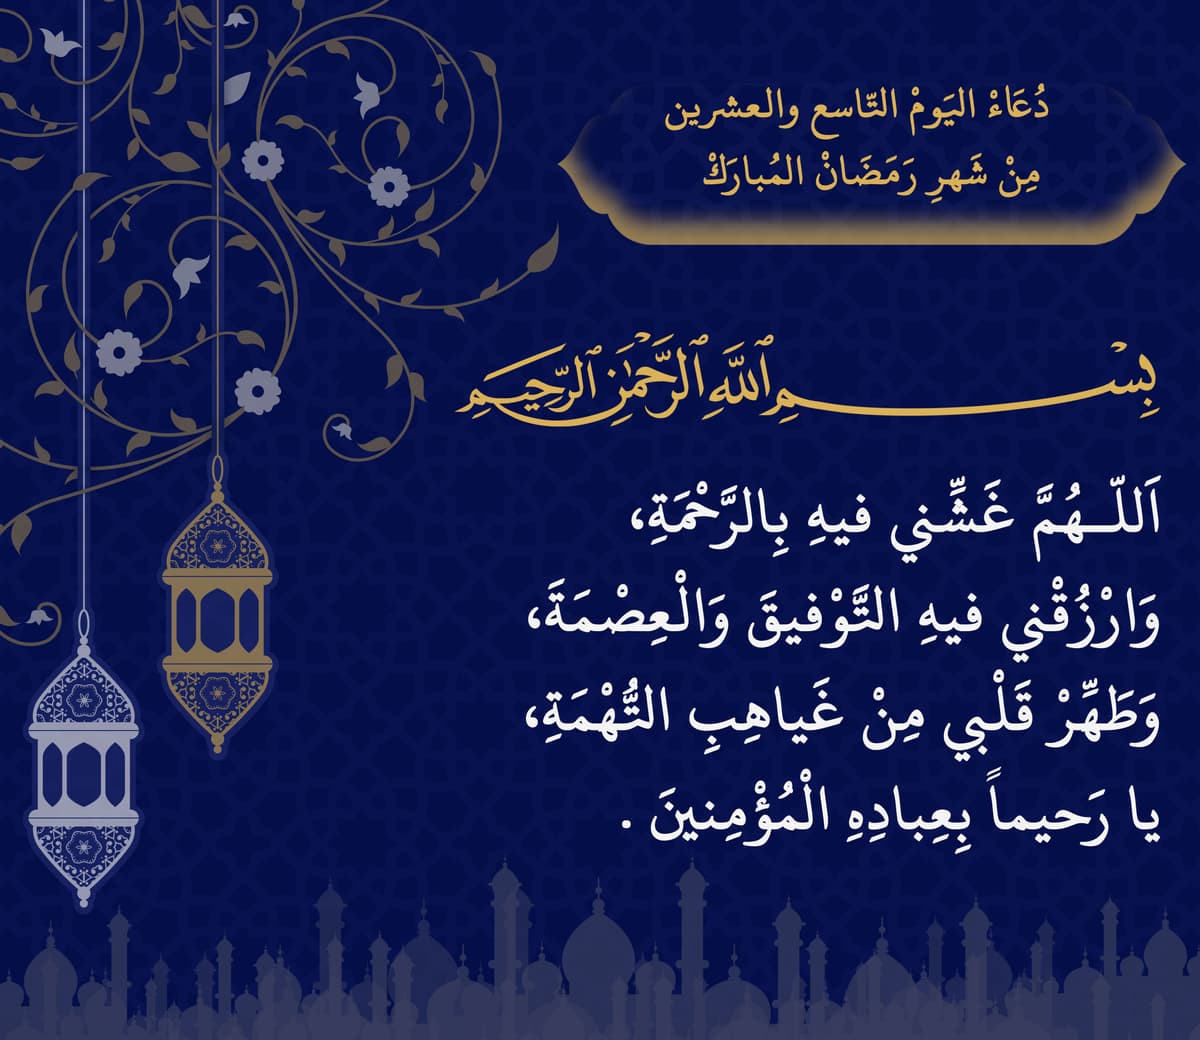 دُعَاءْ اليَومْ التّاسع والعشرين
مِنْ شَهرِ رَمَضَانْ المُبارَكْ
بِسْمِ ٱللَّهِ ٱلرَّحْمَٰنِ ٱلرَّحِيمِ
اَللّـهُمَّ غَشِّني فيهِ بِالرَّحْمَةِ،
وَارْزُقْني فيهِ التَّوْفيقَ وَالْعِصْمَةَ،
وَطَهِّرْ قَلْبي مِنْ غَياهِبِ التُّهْمَةِ،
يا رَحيماً بِعِبادِهِ الْمُؤْمِنينَ .